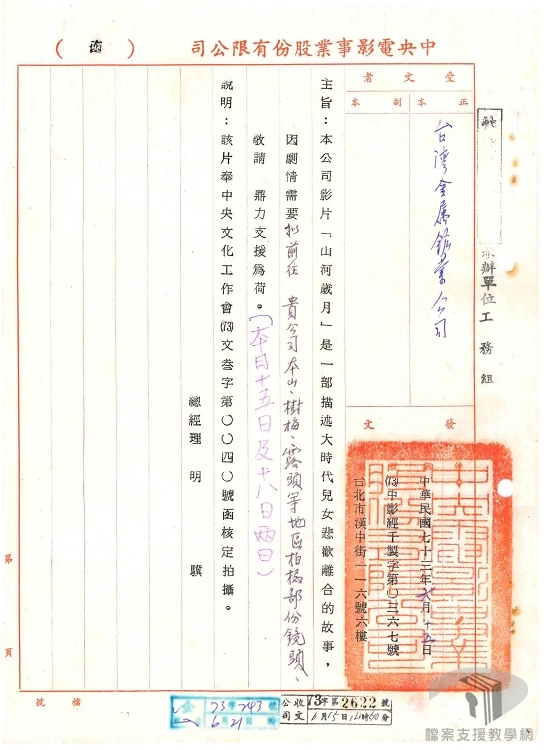 中央電影事業股份有限公司（函）
受文者
正本
副本
台灣金属鑛業公司
承辦單位工務組
發文
中華民國七十三年六月十五日
(73)中影經千製字第〇三六七號
台北市漢中街一一六號六樓
主旨：本公司影片「山河歲月」是一部描述大時代兒女悲歡離合的故事，
因劇情需要擬前往　貴公司本山、樹梅、露頭等地區拍攝部份鏡頭、
敬請　鼎力支援為荷。（本月十五日及十八日兩日）
說明：該片奉中央文化工作會(73)文叁字第〇〇四〇號函核定拍攝。
總經理　明　驥
第　頁
檔號
公司收文 73字第2622號
6月15日16時50分
金 73字743號
6月21
檔案支援教學網